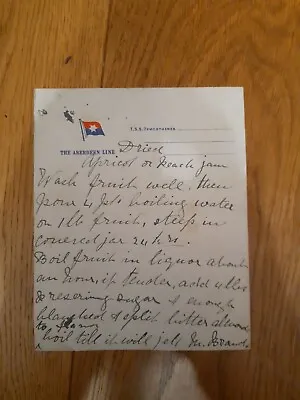 T.S.S.
THE ABERDEEN LINE
Dried
Apricot or Peach jam
Wash fruit well, then
pour 4 pts boiling water
on 1 lb fruit, steep in
covered jar 24 hrs.
Boil fruit in liquor about
an hour, if tender, add 4 lbs
Preserving sugar & enough
blanched & split bitter almond
to flavour
boil till it will jell